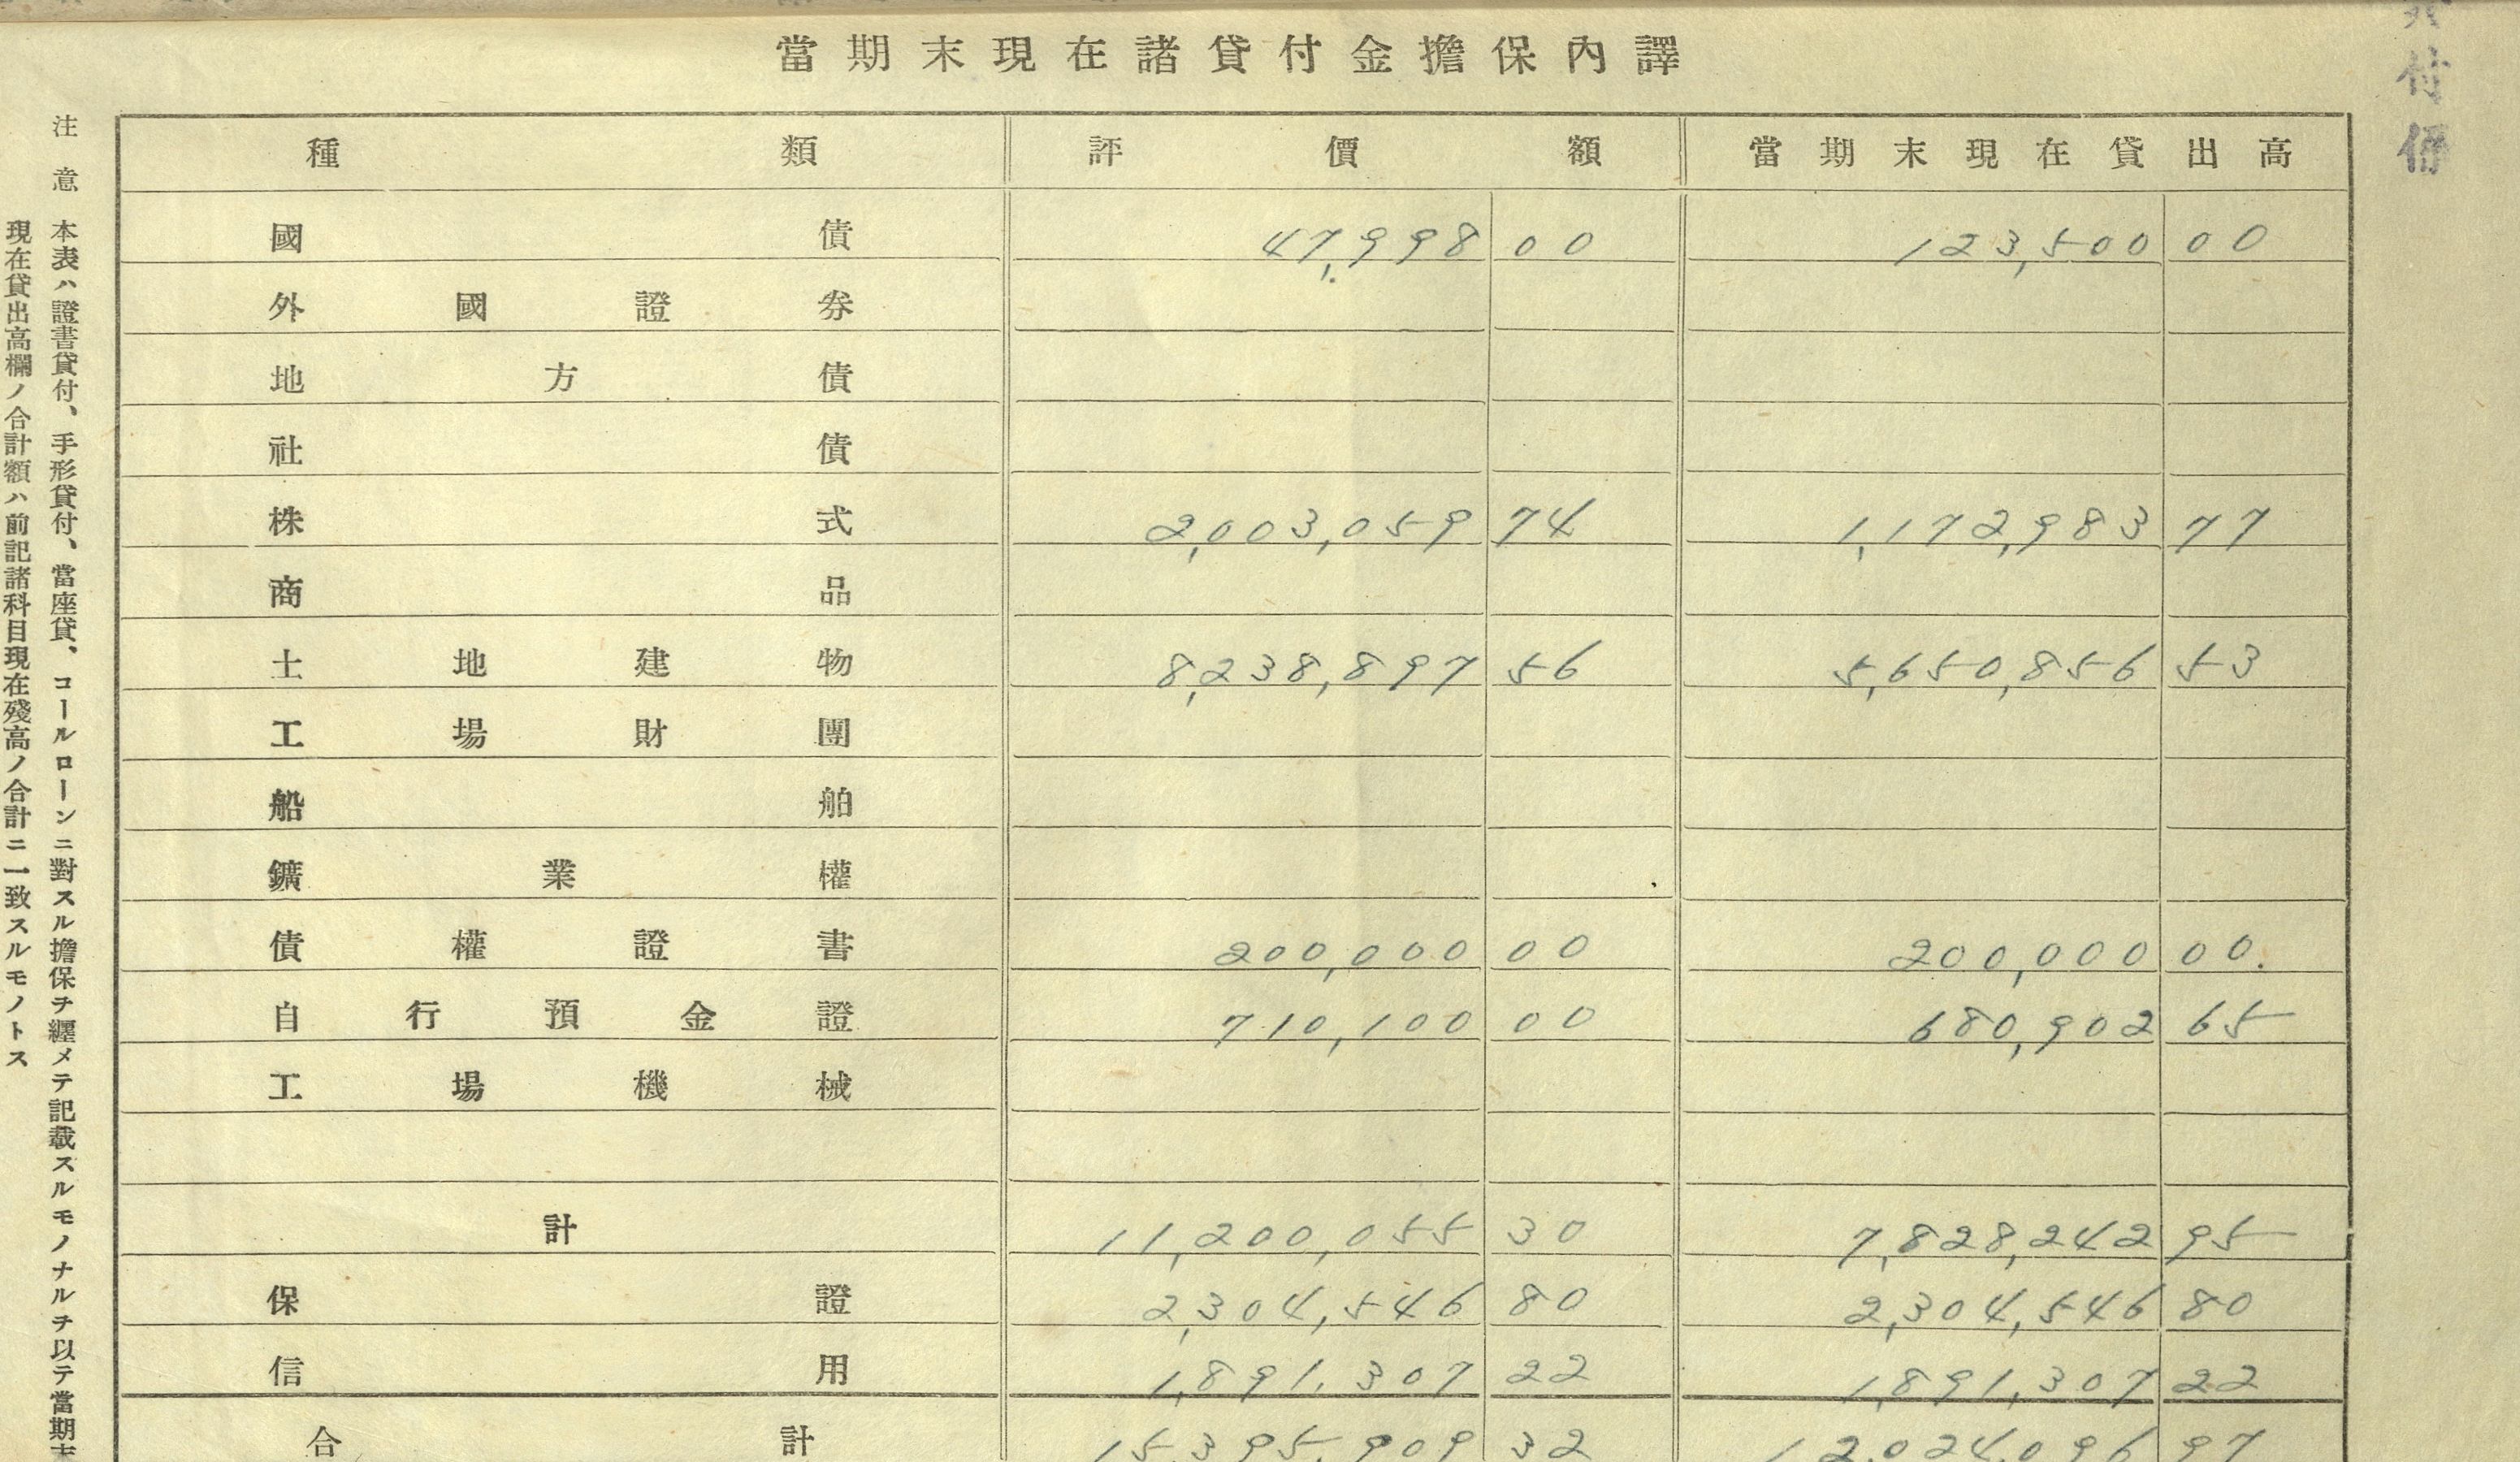 當期末現在諸貸付金擔保內譯
種類 評價額 當期末現在貸出高
國債 47,998 00 123,500 00
外國證券
地方債
社債
株式 2,003,059 74 1,172,983 77
商品
土地建物 8,238,897 56 5,650,856 53
工場財團
船舶
鑛業權
債權證書 200,000 00 200,000 00.
自行預金證 710,100 00 680,902 65
工場機械
計 11,200,055 30 7,828,242 95
保證 2,304,546 80 2,304,546 80
信用 1,891,307 22 1,891,307 22
合計 15,395,909 32 12,024,096 97
注意 本表ハ證書貸付、手形貸付、當座貸、コールローンニ對スル擔保ヲ纒メテ記載スルモノナルヲ以テ當期末
現在貸出高欄ノ合計額ハ前記諸科目現在殘高ノ合計ニ一致スルモノトス
付